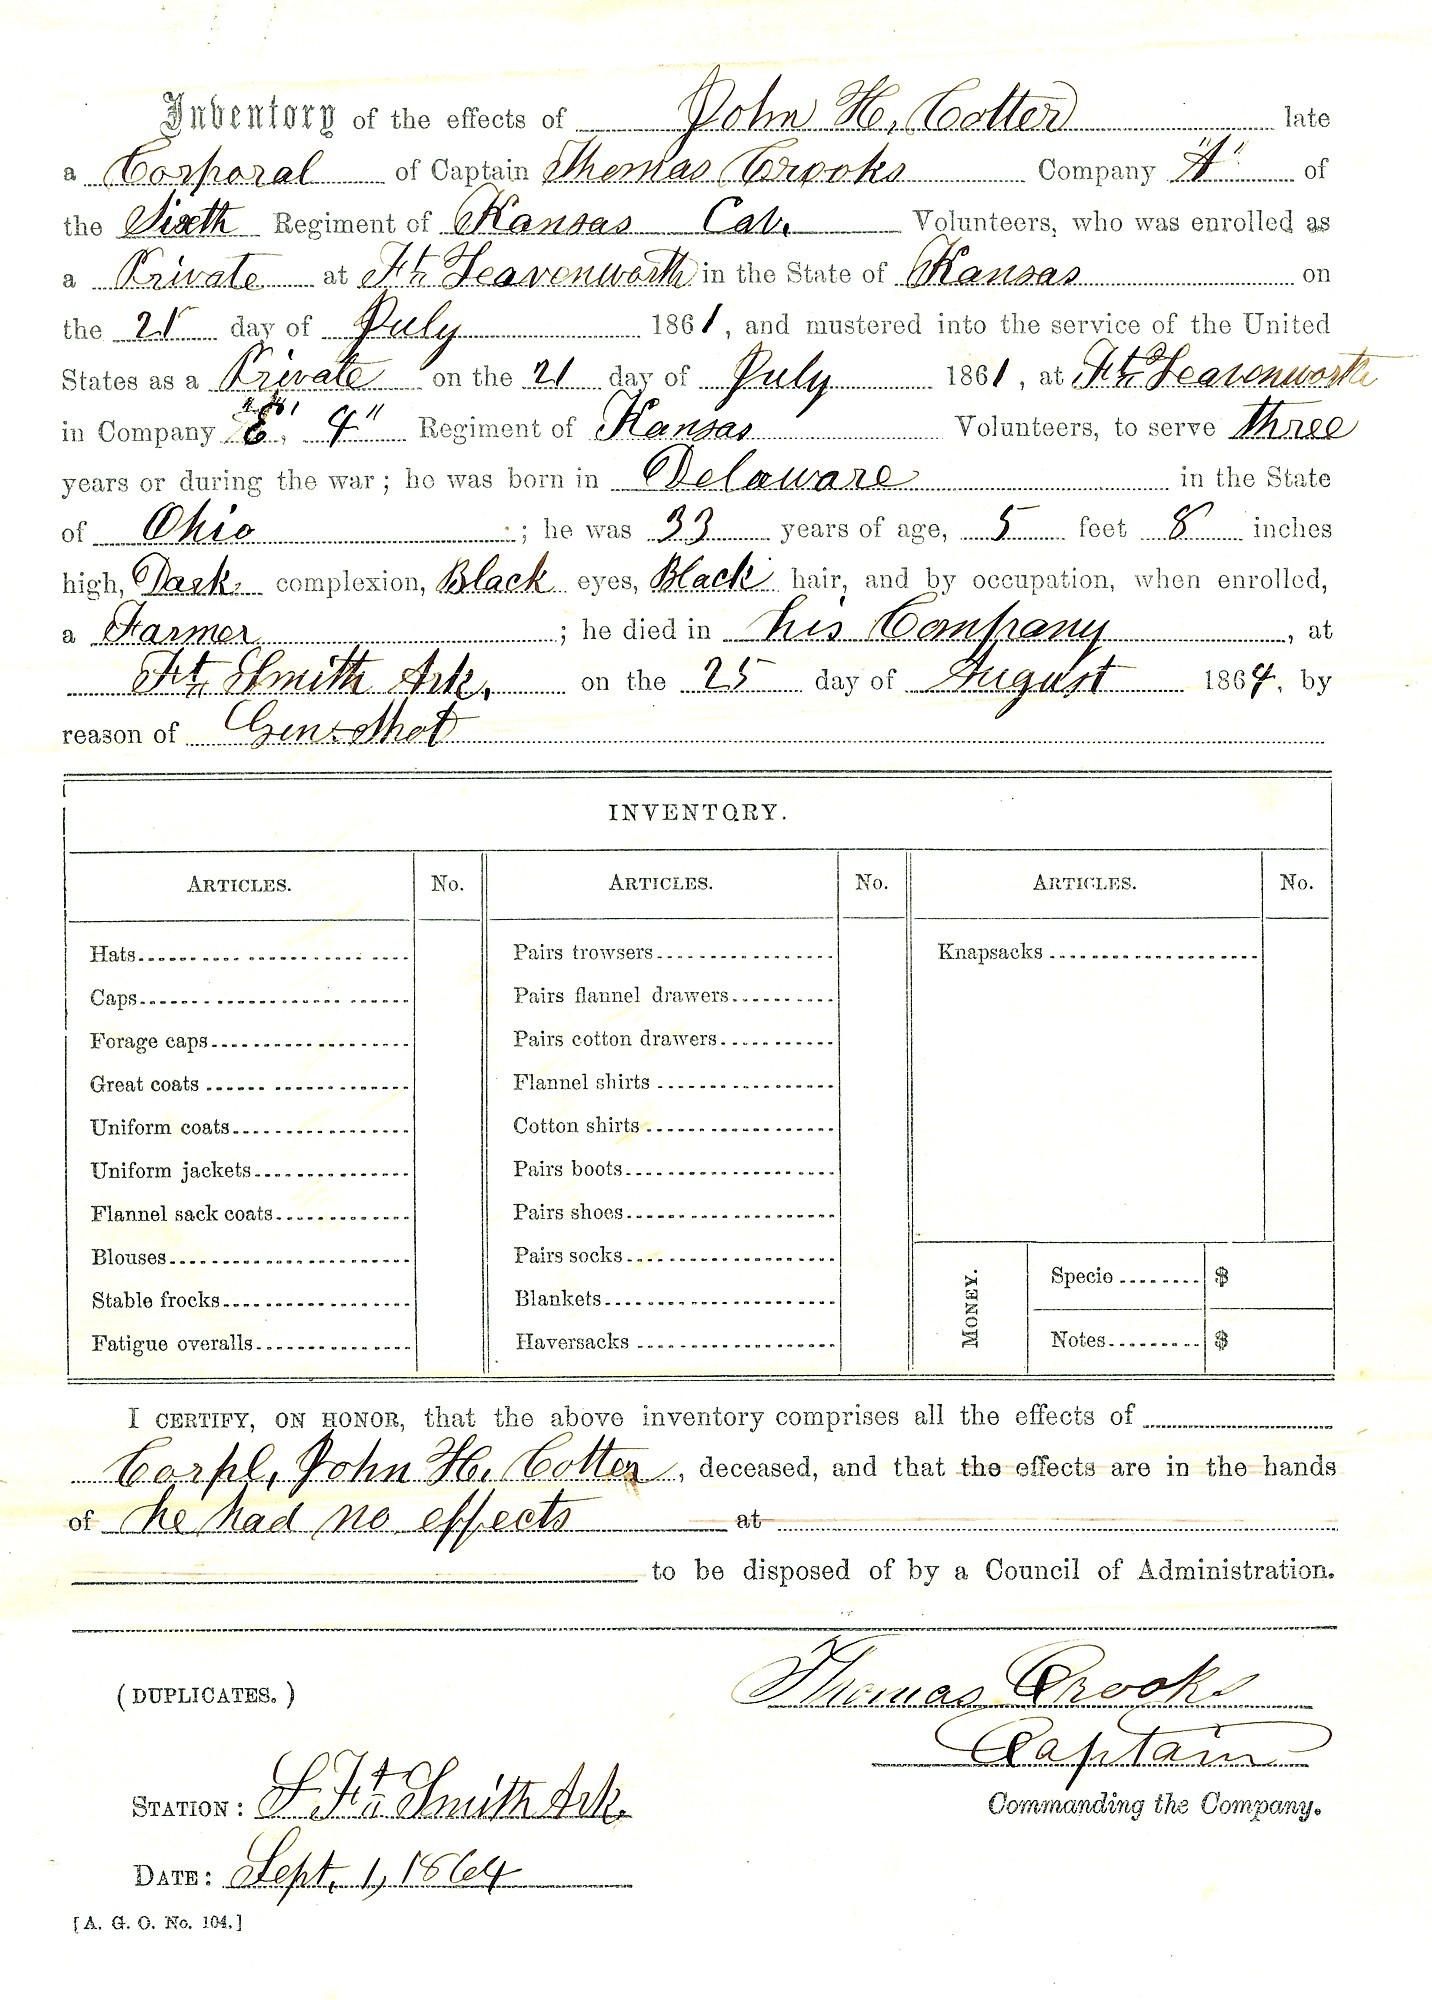 Inventory of the effects of John H. Cotter late
a Corporal of Captain Thomas Crooks Company "A" of
the Sixth Regiment of Kansas Cav. Volunteers, who was enrolled as
a Private at Ft. Leavenworth in the State of Kansas on
the 21 day of July 1861, and mustered into the service of the United
States as a Private on the 21 day of July 1861, at Ft. Leavenworth
in Company "E", 4" Regiment of Kansas Volunteers, to serve three
years or during the war; he was born in Delaware in the State
of Ohio; he was 33 years of age, 5 feet 8 inches
high, Dark complexion, Black eyes, Black hair, and by occupation, when enrolled,
a Farmer; he died in his Company, at
Ft. Smith Ark. on the 25 day of August 1864, by
reason of Gun-Shot
INVENTORY.
ARTICLES. No. ARTICLES. No. ARTICLES. No.
Hats Pairs trowsers Knapsacks
Caps Pairs flannel drawers
Forage caps Pairs cotton drawers
Great coats Flannel shirts
Uniform coats Cotton shirts
Uniform jackets Pairs boots
Flannel sack coats Pairs shoes
Blouses Pairs socks
Stable frocks Blankets
Fatigue overalls Haversacks
MONEY.
Specie $
Notes $
I CERTIFY, ON HONOR, that the above inventory comprises all the effects of
Corpl. John H. Cotter, deceased, and that the effects are in the hands
of he had no effects at
to be disposed of by a Council of Administration.
(DUPLICATES.)
Thomas Crooks
Captain
Commanding the Company.
STATION: Ft. Smith Ark.
DATE: Sept. 1, 1864
[A. G. O. No. 104.]